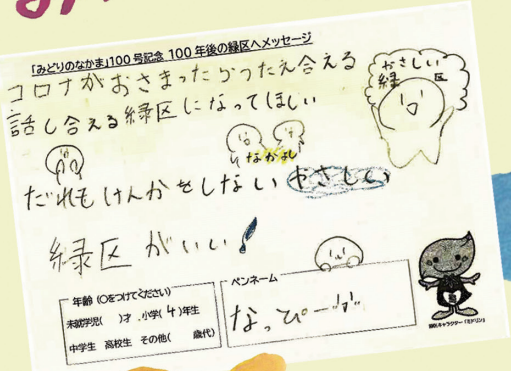 「みどりのなかま」100号記念 100年後の緑区へメッセージ
コロナがおさまったらつたえ合える
話し合える緑区になってほしい
やさしい
緑区
なかよし
だれもけんかをしないやさしい
緑区がいい!
年齢(○をつけてください)
未就学児( )才 小学(4)年生
中学生 高校生 その他( 歳代)
ペンネーム
なっぴー